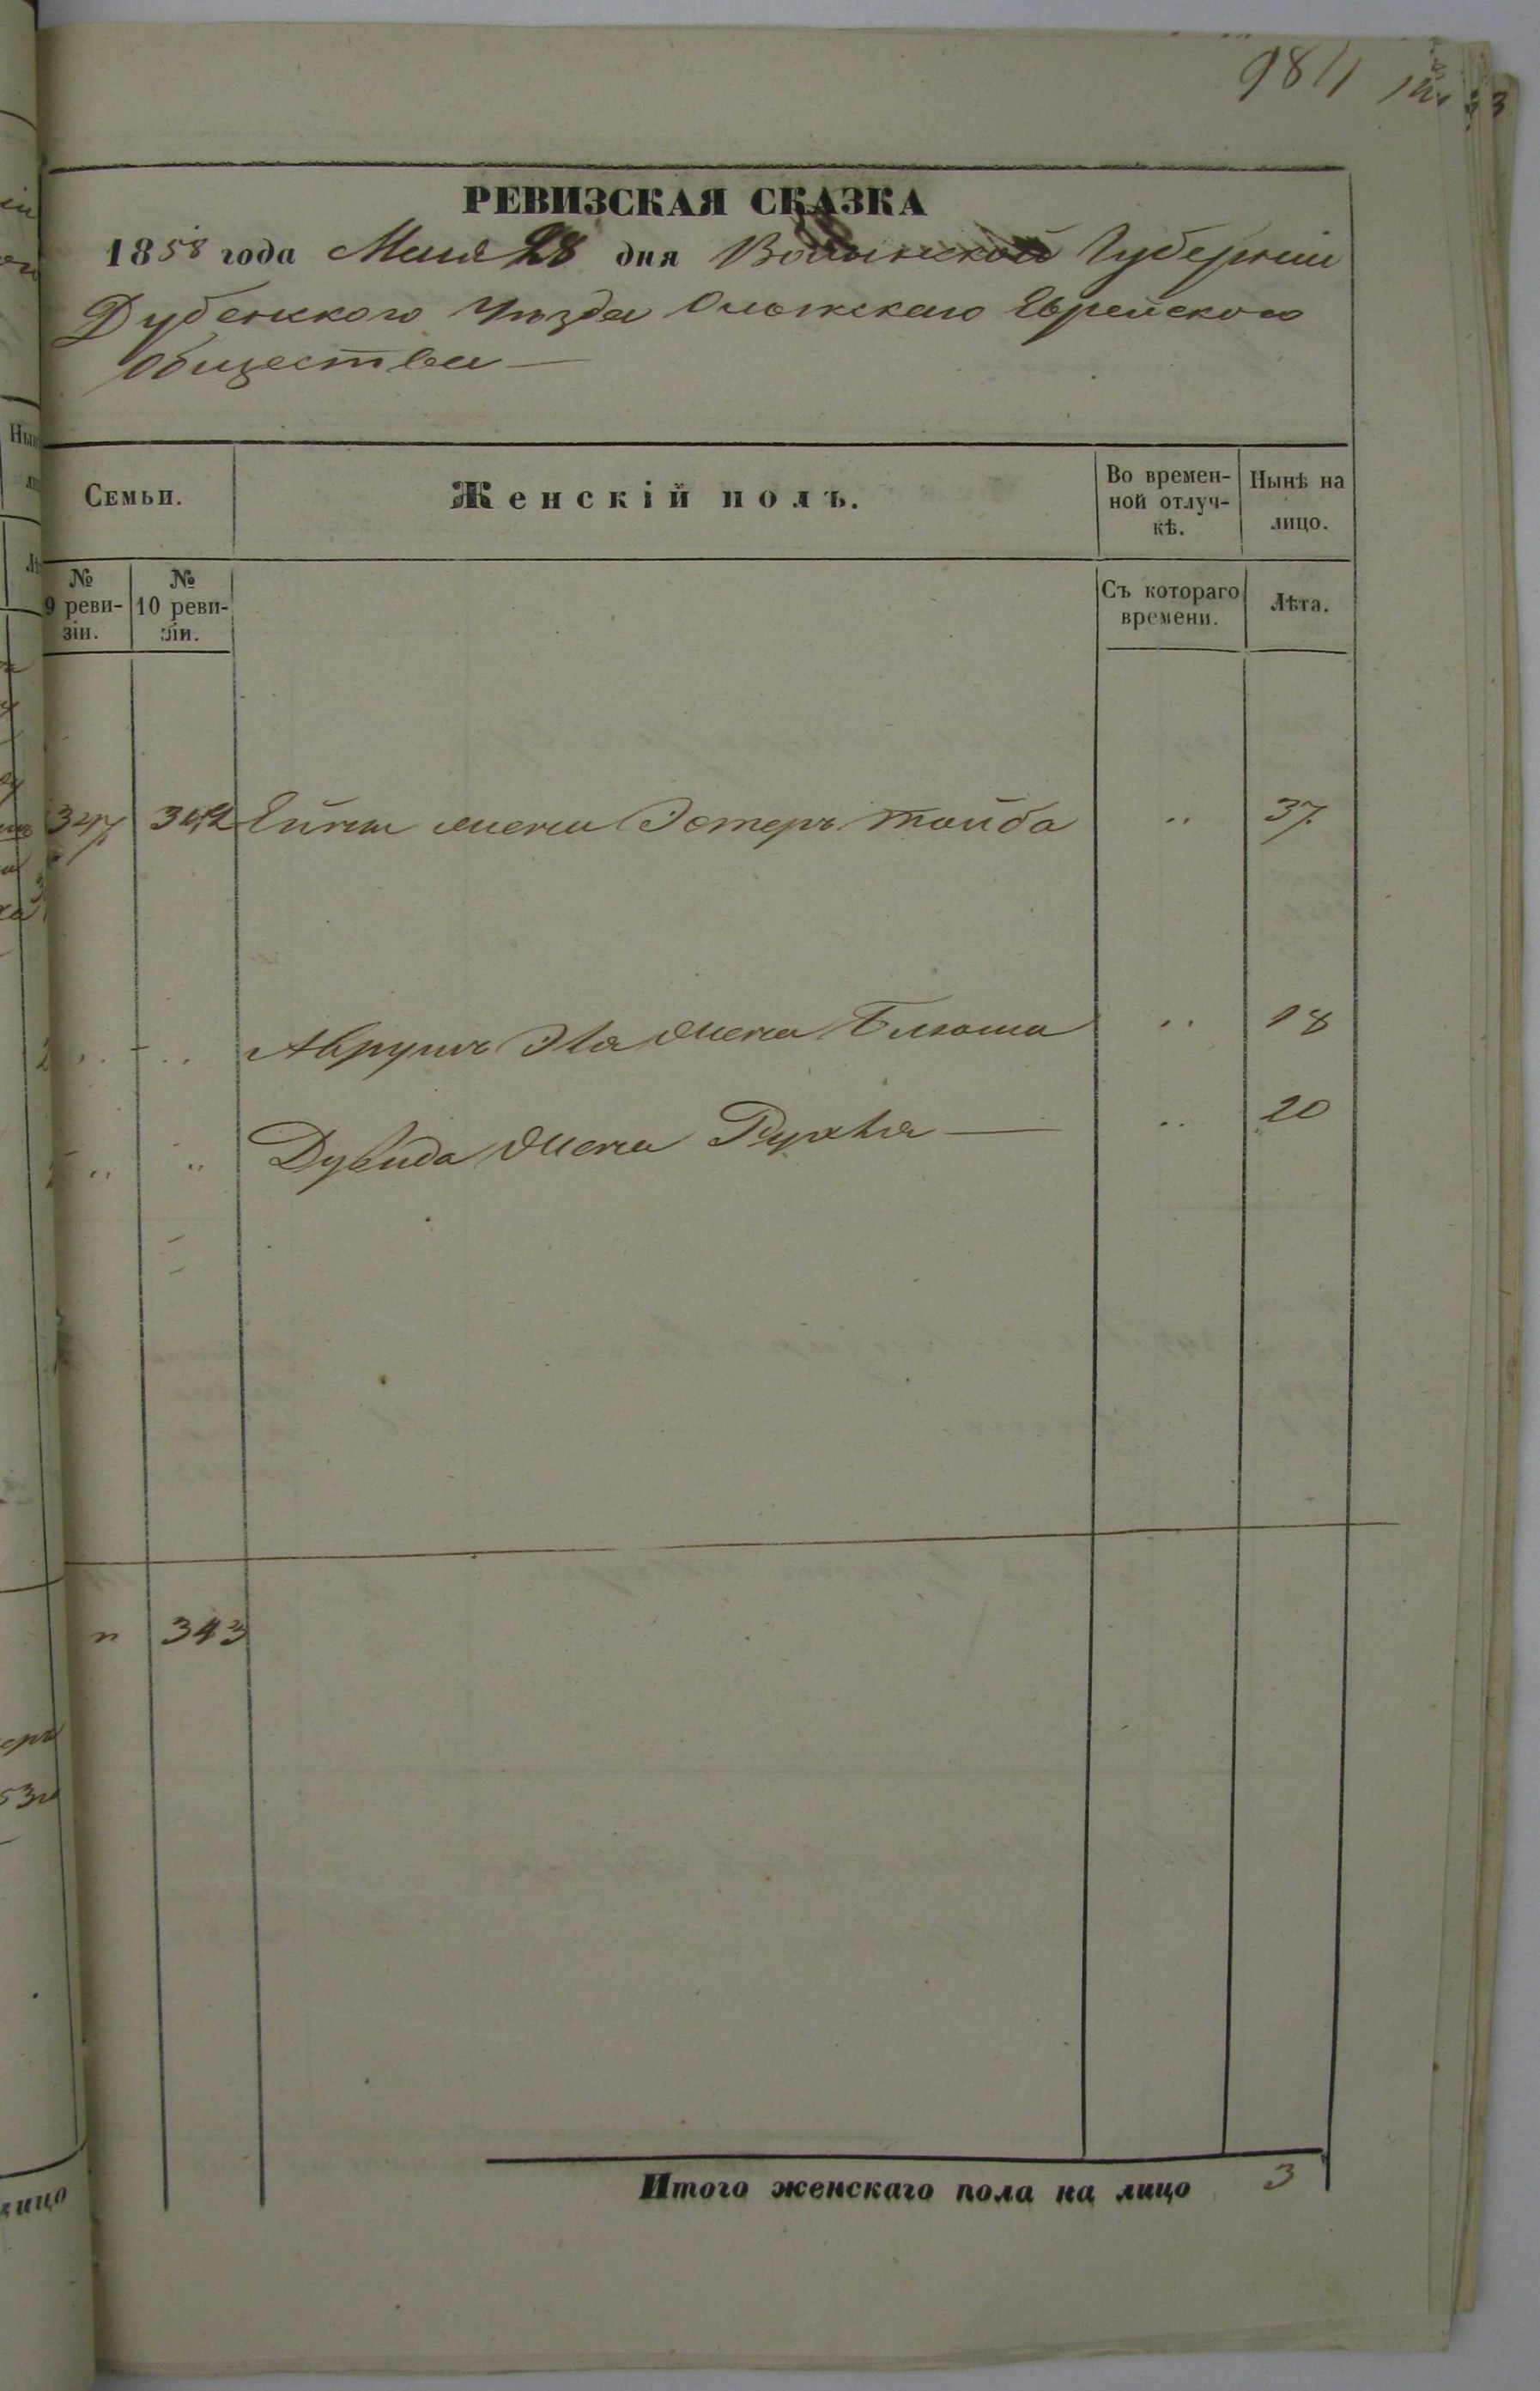 984
РЕВИЗСКАЯ СКАЗКА
1858 года Мая 28 дня Волынской Губернии
Дубенского Уѣзда Олыкскаго Еврейского
Общества —
Семьи.
Женскій полъ.
Во времен-
ной отлуч-
кѣ.
Нынѣ на
лицо.
№
9 реви-
зіи.
№
10 реви-
зіи.
Съ котораго
времени.
Лѣта.
347 342 жена Эстеръ Тайба " 37
" " Аврумъ Эля жена Блюма " 18
" " Дувида жена Рухля — " 20
" 343
Итого женскаго пола на лицо 3